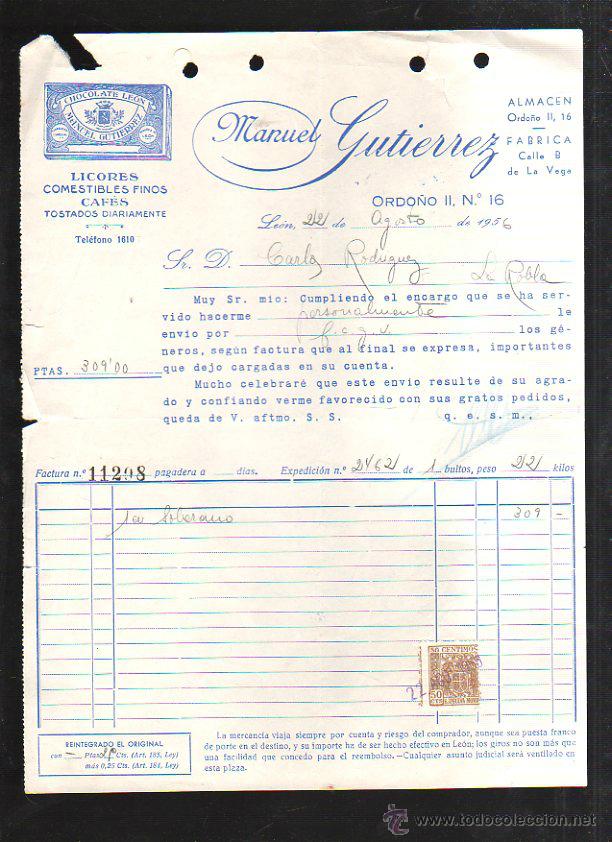 CHOCOLATE LEÓN
MANUEL GUTIERREZ
LICORES
COMESTIBLES FINOS
CAFÉS
TOSTADOS DIARIAMENTE
Teléfono 1610
Manuel Gutierrez
ALMACEN
Ordoño II, 16
FABRICA
Calle B
de La Vega
ORDOÑO II, N.º 16
León, 22 de Agosto de 1956
Sr. D. Carlos Rodriguez
La Robla
Muy Sr. mio: Cumpliendo el encargo que se ha ser-
vido hacerme personalmente le
envio por los gé-
neros, según factura que al final se expresa, importantes
PTAS. 309'00
que dejo cargadas en su cuenta.
Mucho celebraré que este envio resulte de su agra-
do y confiando verme favorecido con sus gratos pedidos,
queda de V. aftmo. S. S. q. e. s. m.,
Factura n.º 11298 pagadera a días. Expedición n.º 2462 de 1 bultos, peso 22 kilos
Soberano 309 -
50 CENTIMOS
50
CTS
REINTEGRADO EL ORIGINAL
con — Ptas. Cts. (Art. 185, Ley)
más 0,25 Cts. (Art. 184, Ley)
La mercancia viaja siempre por cuenta y riesgo del comprador, aunque sea puesta franco
de porte en el destino, y su importe ha de ser hecho efectivo en León; los giros no son más que
una facilidad que concedo para el reembolso.—Cualquier asunto judicial será ventilado en
esta plaza.
todocoleccion.net